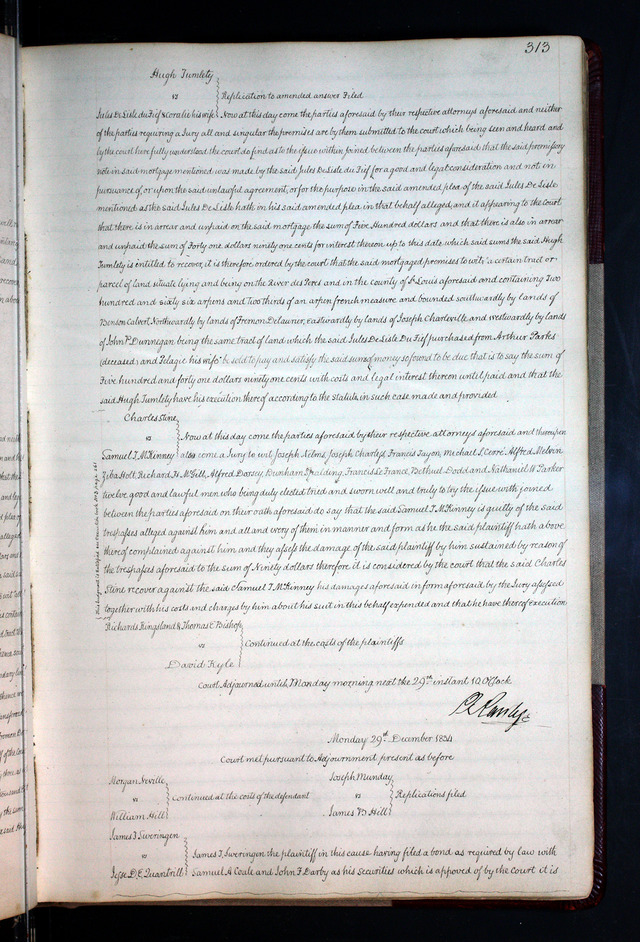 313
Hugh Tumlety
vs } Replication to amended answer Filed
Jules De Lisle du Fief & Coralie his wife } Now at this day come the parties aforesaid by their respective attorneys aforesaid and neither
of the parties requiring a Jury all and singular the premises are by them submitted to the court which being seen and heard and
by the court here fully understood the court do find as to the issue within joined between the parties aforesaid that the said promissory
note in said mortgage mentioned was made by the said Jules De Lisle du Fief for a good and legal consideration and not in
pursuance of, or upon the said unlawful agreement, or for the purpose in the said amended plea of the said Jules De Lisle
mentioned as the said Jules De Lisle hath in his said amended plea in that behalf alleged, and it appearing to the court
that there is in arrear and unpaid on the said mortgage the sum of Five Hundred dollars and that there is also in arrear
and unpaid the sum of Forty one dollars ninety one cents for interest thereon up to this date which said sums the said Hugh
Tumlety is intitled to recover, it is therefore ordered by the court that the said mortgaged premises to wit; "a certain tract or
parcel of land situate lying and being on the River des Peres and in the county of St Louis aforesaid and containing Two
hundred and sixty six arpens and Two thirds of an arpen french measure and bounded southwardly by lands of
Benson Calvert, Northwardly by lands of Fremon Delaurier, eastwardly by lands of Joseph Charleville and westwardly by lands
of John P. Dunnegan being the same tract of land which the said Jules De Lisle Du Fief purchased from Arthur Parks
(deceased) and Pelagie his wife" be sold to pay and satisfy the said sums of money so found to be due that is to say the sum of
Five hundred and forty one dollars ninety one cents with costs and legal interest thereon until paid and that the
said Hugh Tumlety have his execution thereof according to the statute in such case made and provided
Charles Stine
vs } Now at this day come the parties aforesaid by their respective attorneys aforesaid and thereupon
Samuel T. McKinney } also come a Jury to wit Joseph Nelms, Joseph Charless Francis Fayon, Michael L. Cerré Alfred Melvin
Ziba Holt, Richard H. McGill, Alfred Dorsey, Dunham Spalding, Francis Le Franc, Bethuel Dodd and Nathaniel H. Parker
twelve good and lawful men who being duly elected tried and sworn well and truly to try the issue with joined
between the parties aforesaid on their oath aforesaid do say that the said Samuel T. McKinney is guilty of the said
trespasses alleged against him and all and every of them in manner and form as he the said plaintiff hath above
thereof complained against him and they assess the damage of the said plaintiff by him sustained by reason of
the trespasses aforesaid to the sum of Ninety dollars therefore it is considered by the court that the said Charles
Stine recover against the said Samuel T. McKinney his damages aforesaid in form aforesaid by the Jury assessed
together with his costs and charges by him about his suit in this behalf expended and that he have thereof execution
Richards Ringsland & Thomas E. Bishop
vs } Continued at the costs of the plaintiffs
David Kyle
Court Adjourned until Monday morning next the 29th instant 10 O'clock
Monday 29th December 1834
Court met pursuant to Adjournment present as before
Morgan Neville
vs } Continued at the costs of the defendant
William Hill
Joseph Munday
vs } Replications filed
James B. Hill
James T. Sweringen
vs } James T. Sweringen the plaintiff in this cause having filed a bond as required by law with
Jesse D. E. Quantrill } Samuel A. Coale and John F. Darby as his Securities which is approved of by the court it is